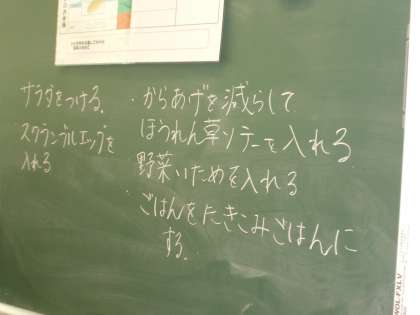 サラダをつける.
スクランブルエッグを
入れる
・からあげを減らして
ほうれん草ソテーを入れる
野菜いためを入れる
・ごはんをたきこみごはんに
する.